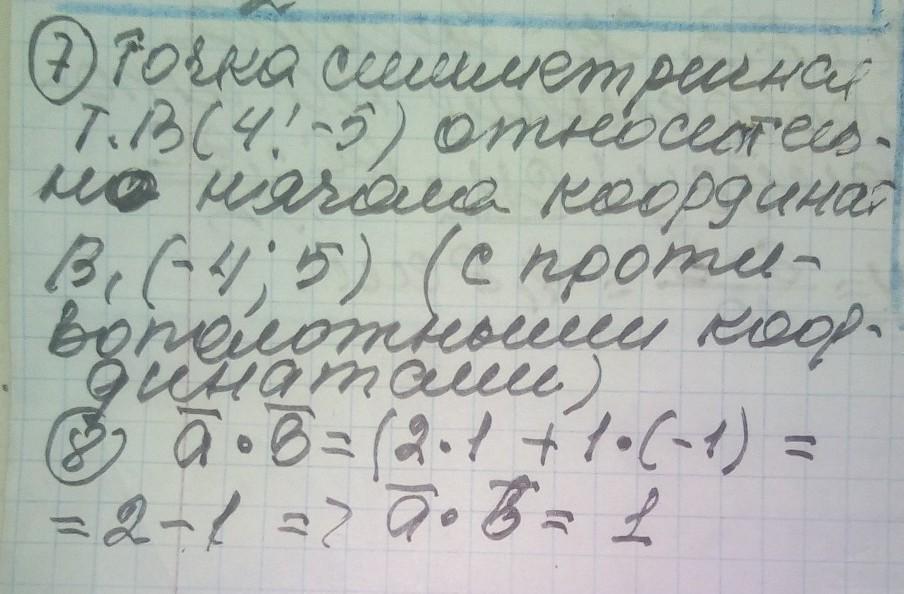 7) Точка симметричная
т. В(4; -5) относитель-
но начала координат
В₁(-4; 5) (с проти-
воположными коор-
динатами)
8) a̅ · b̅ = (2·1 + 1·(-1) =
= 2 - 1 => a̅ · b̅ = 1